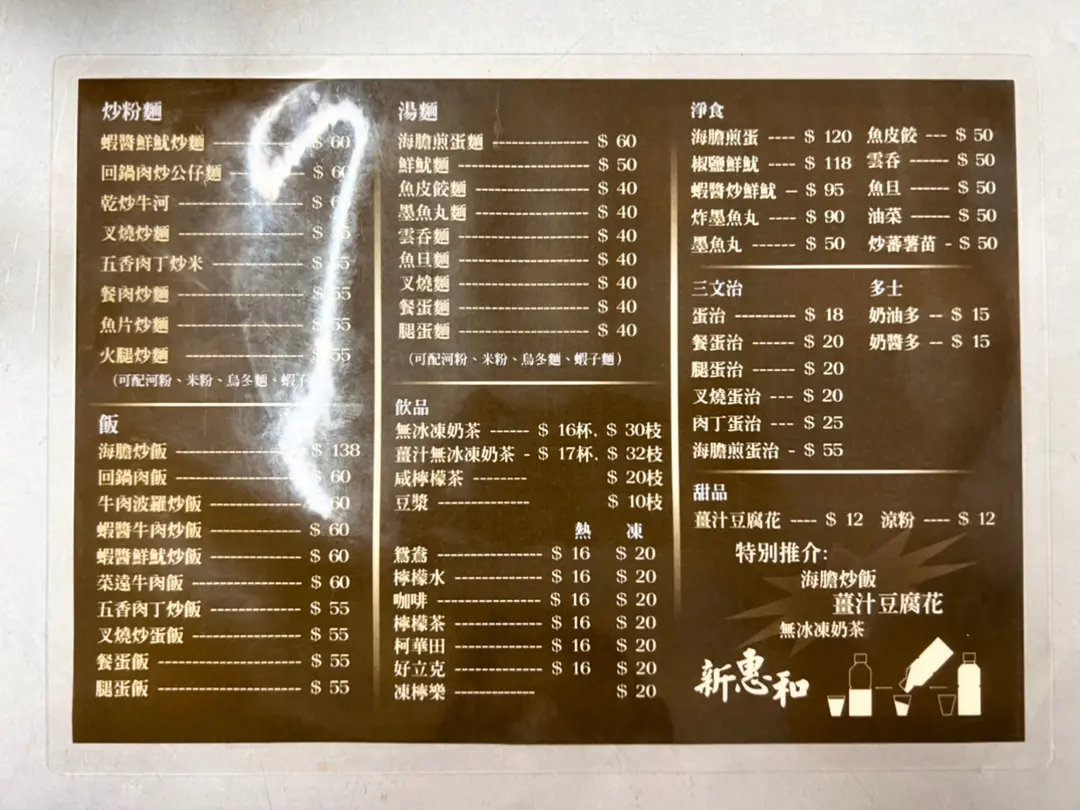 炒粉麵
蝦醬鮮魷炒麵 ---------- $ 60
回鍋肉炒公仔麵 -------- $ 60
乾炒牛河 --------------- $
叉燒炒麵 --------------- $ 55
五香肉丁炒米 ----------- $ 55
餐肉炒麵 --------------- $ 55
魚片炒麵 --------------- $ 55
火腿炒麵 --------------- $ 55
(可配河粉、米粉、烏冬麵、蝦子
飯
海膽炒飯 ---------------- $ 138
回鍋肉飯 ---------------- $ 60
牛肉波羅炒飯 ------------ 60
蝦醬牛肉炒飯 ------------ $ 60
蝦醬鮮魷炒飯 ------------ $ 60
菜遠牛肉飯 -------------- $ 60
五香肉丁炒飯 ------------ $ 55
叉燒炒蛋飯 -------------- $ 55
餐蛋飯 ------------------ $ 55
腿蛋飯 ------------------ $ 55
湯麵
海膽煎蛋麵 -------------- $ 60
鮮魷麵 ------------------ $ 50
魚皮餃麵 ---------------- $ 40
墨魚丸麵 ---------------- $ 40
雲吞麵 ------------------ $ 40
魚旦麵 ------------------ $ 40
叉燒麵 ------------------ $ 40
餐蛋麵 ------------------ $ 40
腿蛋麵 ------------------ $ 40
(可配河粉、米粉、烏冬麵、蝦子麵)
飲品
無冰凍奶茶 ------ $ 16杯, $ 30枝
薑汁無冰凍奶茶 - $ 17杯, $ 32枝
咸檸檬茶 -------- $ 20枝
豆漿 -------------- $ 10枝
熱 凍
鴛鴦 ---------------- $ 16 $ 20
檸檬水 -------------- $ 16 $ 20
咖啡 ---------------- $ 16 $ 20
檸檬茶 -------------- $ 16 $ 20
柯華田 -------------- $ 16 $ 20
好立克 -------------- $ 16 $ 20
凍檸樂 -------------- $ 20
淨食
海膽煎蛋 ---- $ 120 魚皮餃 --- $ 50
椒鹽鮮魷 ---- $ 118 雲吞 ------ $ 50
蝦醬炒鮮魷 -- $ 95 魚旦 ------ $ 50
炸墨魚丸 ---- $ 90 油菜 ------ $ 50
墨魚丸 ------ $ 50 炒蕃薯苗 - $ 50
三文治
蛋治 --------- $ 18
餐蛋治 ------ $ 20
腿蛋治 ------ $ 20
叉燒蛋治 --- $ 20
肉丁蛋治 --- $ 25
海膽煎蛋治 - $ 55
多士
奶油多 -- $ 15
奶醬多 -- $ 15
甜品
薑汁豆腐花 ---- $ 12 涼粉 ---- $ 12
特別推介:
海膽炒飯
薑汁豆腐花
無冰凍奶茶
新惠和